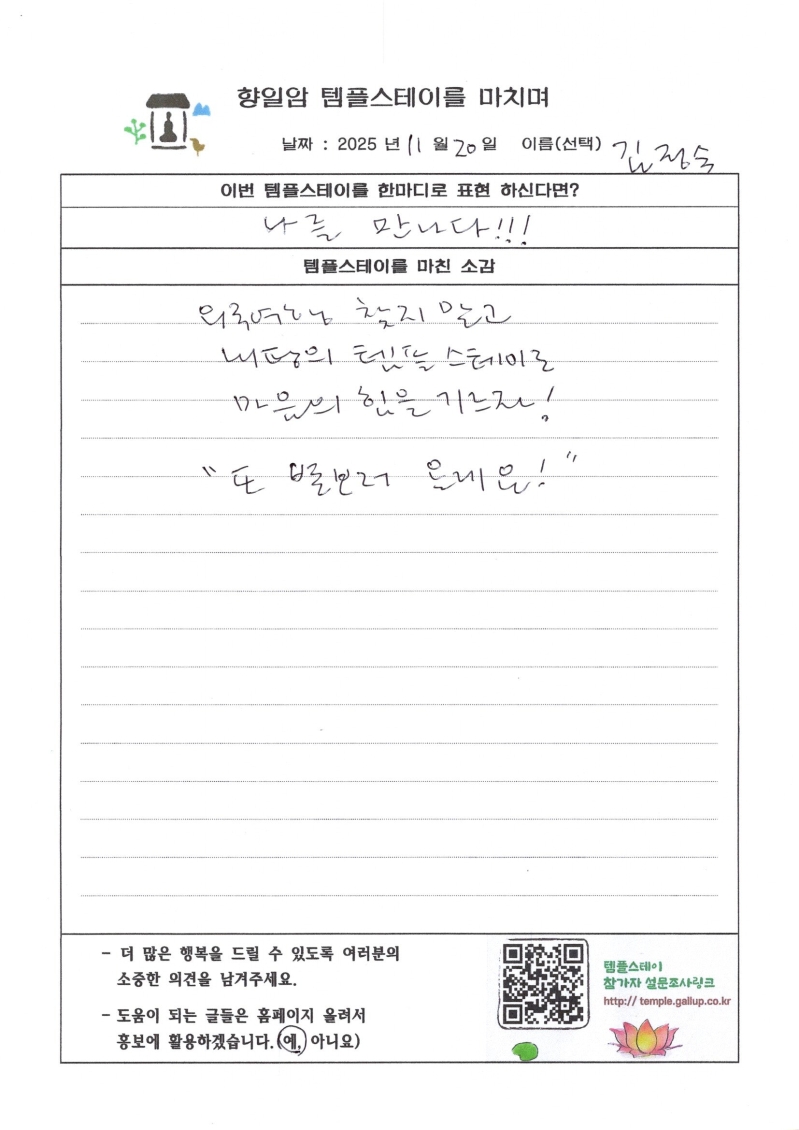 향일암 템플스테이를 마치며
날짜 : 2025 년 11 월 20 일 이름(선택) 김정숙
이번 템플스테이를 한마디로 표현 하신다면?
나를 만나다!!!
템플스테이를 마친 소감
외국여행 찾지 말고
내땅의 템플스테이로
마음의 힘을 기르자!
"또 별보러 올래요!"
- 더 많은 행복을 드릴 수 있도록 여러분의
소중한 의견을 남겨주세요.
- 도움이 되는 글들은 홈페이지 올려서
홍보에 활용하겠습니다.(예, 아니요)
템플스테이
참가자 설문조사링크
http:// temple.gallup.co.kr